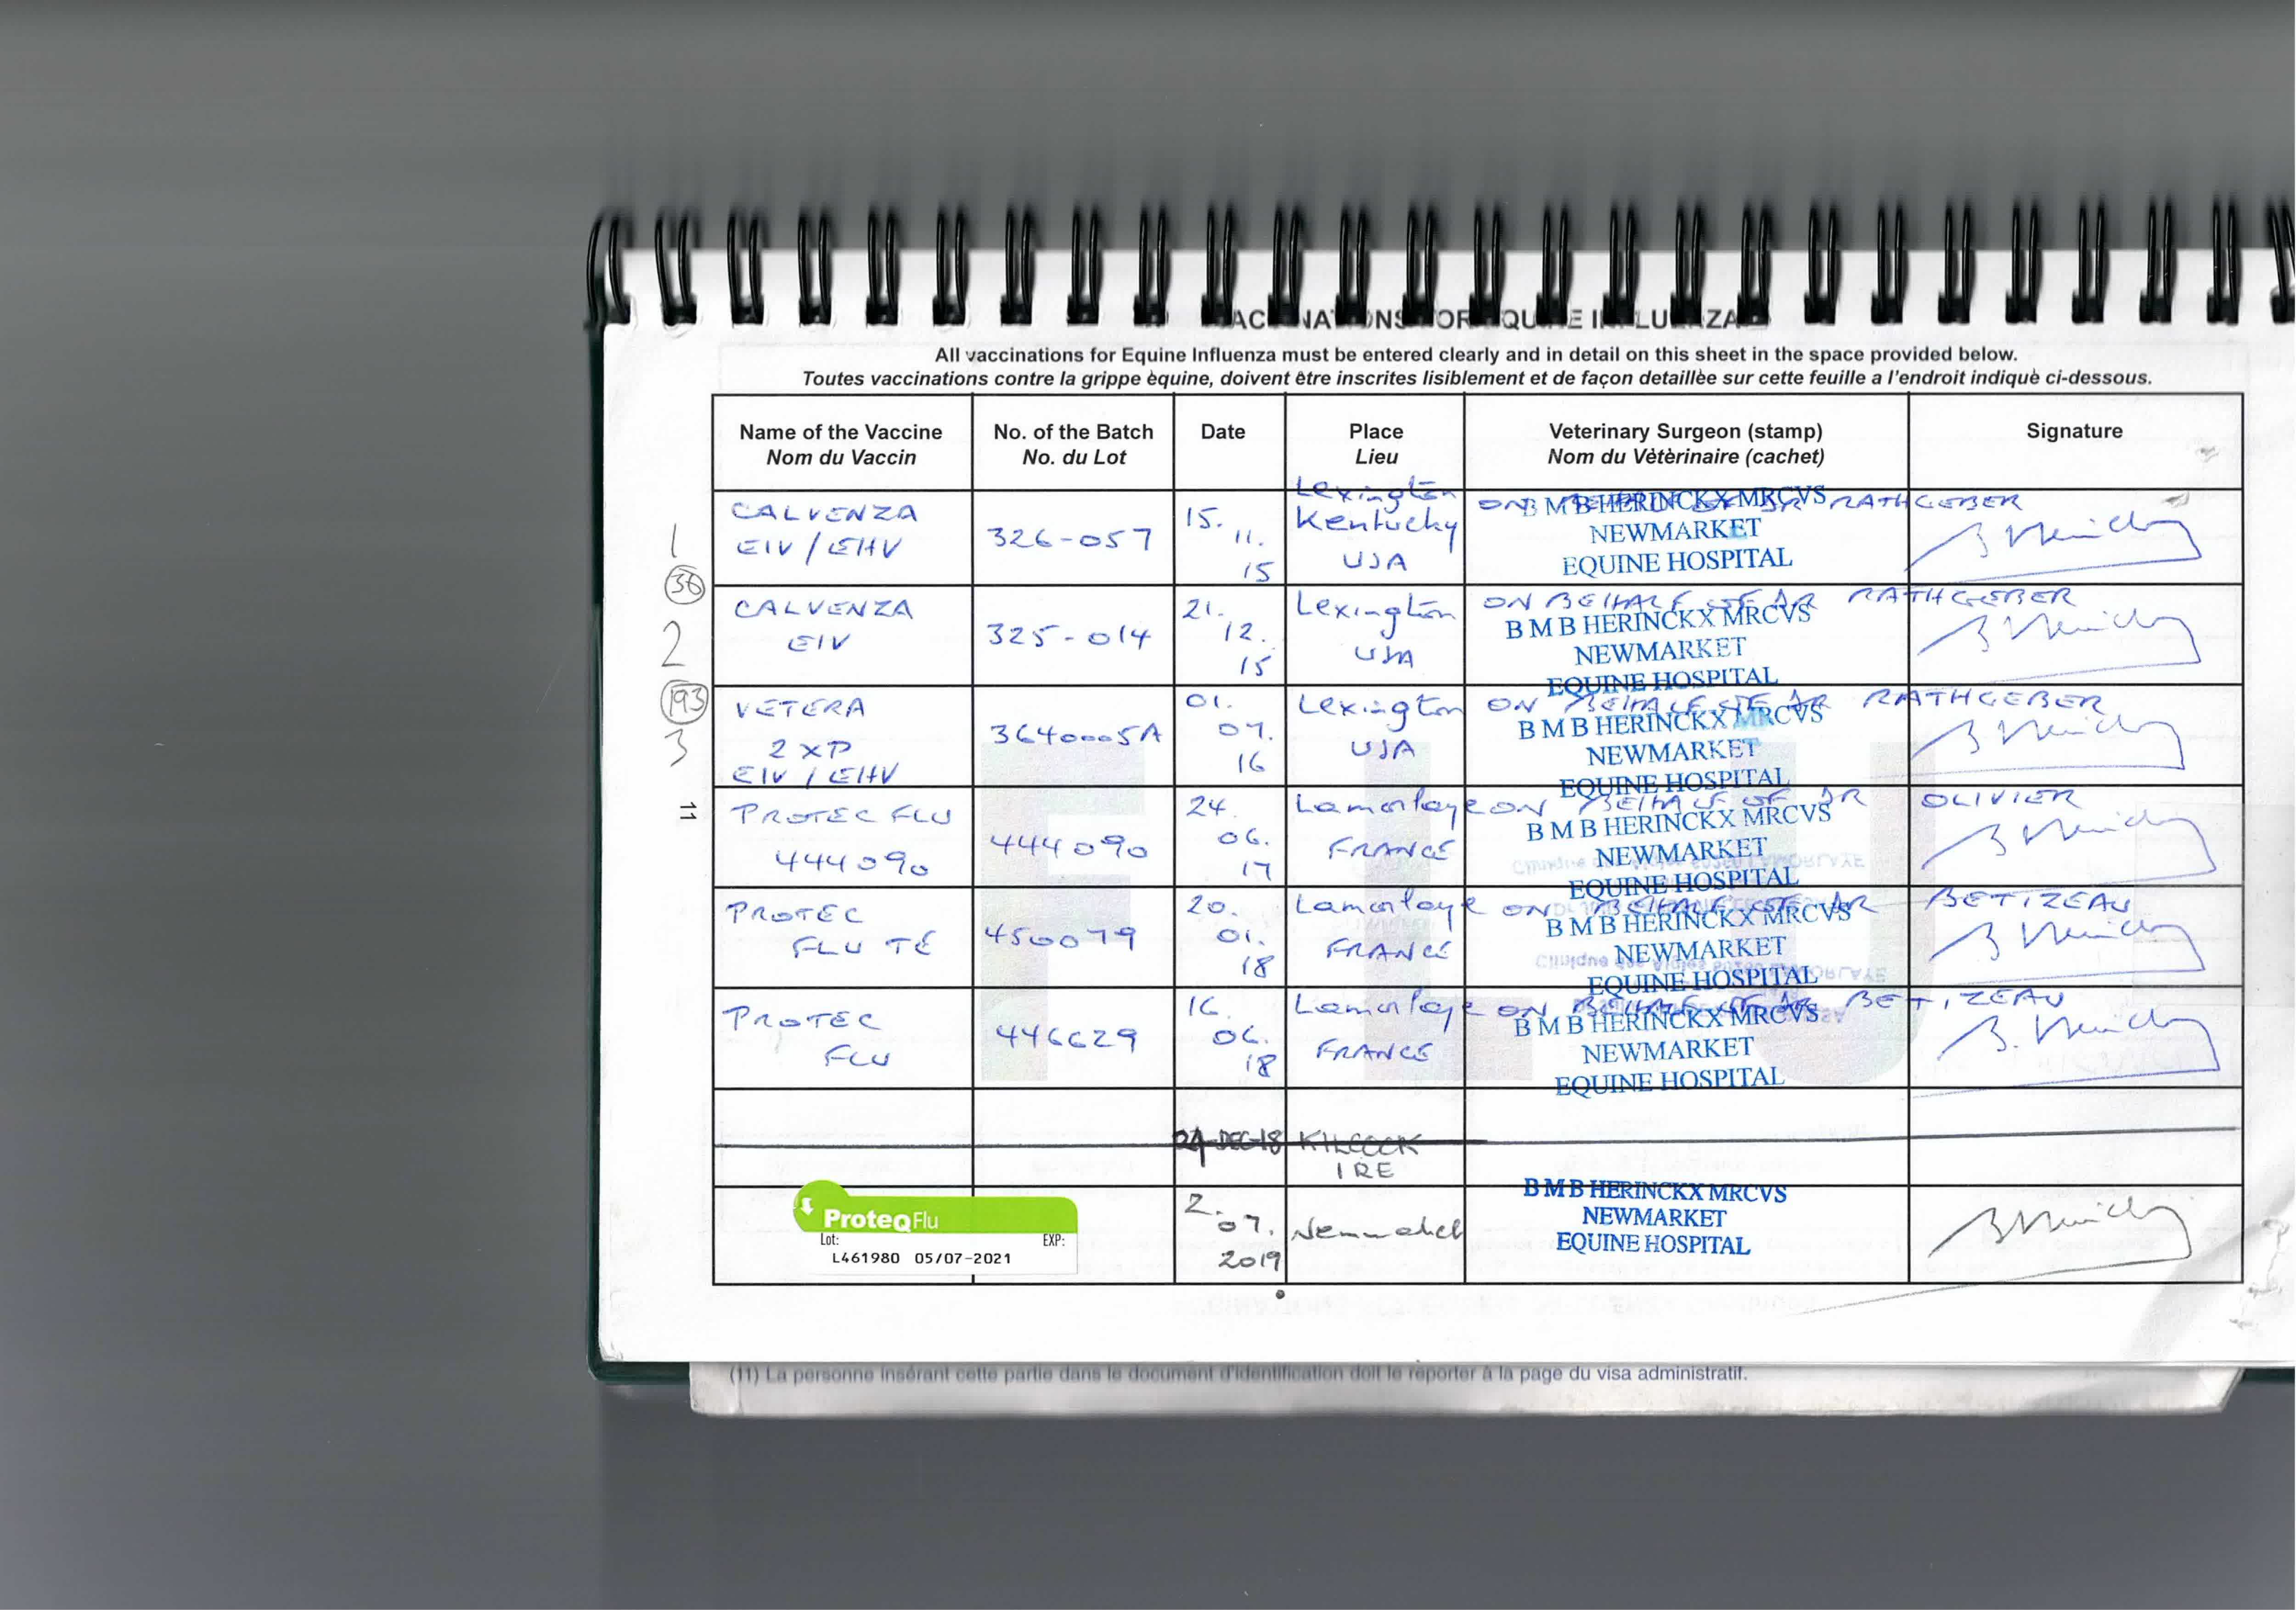 VACCINATIONS FOR EQUINE INFLUENZA
All vaccinations for Equine Influenza must be entered clearly and in detail on this sheet in the space provided below.
Toutes vaccinations contre la grippe èquine, doivent être inscrites lisiblement et de façon detaillèe sur cette feuille a l'endroit indiquè ci-dessous.
Name of the Vaccine No. of the Batch Date Place Veterinary Surgeon (stamp) Signature
Nom du Vaccin No. du Lot Lieu Nom du Vètèrinaire (cachet)
1
CALVENZA
EIV / EHV
326-057
15.
11.
15
Lexington
Kentucky
USA
ON BEHALF OF DR RATHGEBER
B M B HERINCKX MRCVS
NEWMARKET
EQUINE HOSPITAL
36
2
CALVENZA
EIV
325-014
21.
12.
15
Lexington
USA
ON BEHALF OF DR RATHGEBER
B M B HERINCKX MRCVS
NEWMARKET
EQUINE HOSPITAL
193
3
VETERA
2 XP
EIV / EHV
3640005A
01.
07.
16
Lexington
USA
ON BEHALF OF DR RATHGEBER
B M B HERINCKX MRCVS
NEWMARKET
EQUINE HOSPITAL
11
PROTEC FLU
444090
444090
24.
06.
17
Lamorlaye
FRANCE
ON BEHALF OF DR OLIVIER
B M B HERINCKX MRCVS
NEWMARKET
EQUINE HOSPITAL
PROTEC
FLU TE
450079
20.
01.
18
Lamorlaye
FRANCE
ON BEHALF OF DR BETIZEAU
B M B HERINCKX MRCVS
NEWMARKET
EQUINE HOSPITAL
PROTEC
FLU
446629
16.
06.
18
Lamorlaye
FRANCE
ON BEHALF OF DR BETIZEAU
B M B HERINCKX MRCVS
NEWMARKET
EQUINE HOSPITAL
FLU
DEC-18 KILCOCK
IRE
ProteqFlu
Lot: EXP:
L461980 05/07-2021
2.
07.
2019
Newmarket
B M B HERINCKX MRCVS
NEWMARKET
EQUINE HOSPITAL
(11) La personne insérant cette partie dans le document d'identification doit le reporter à la page du visa administratif.